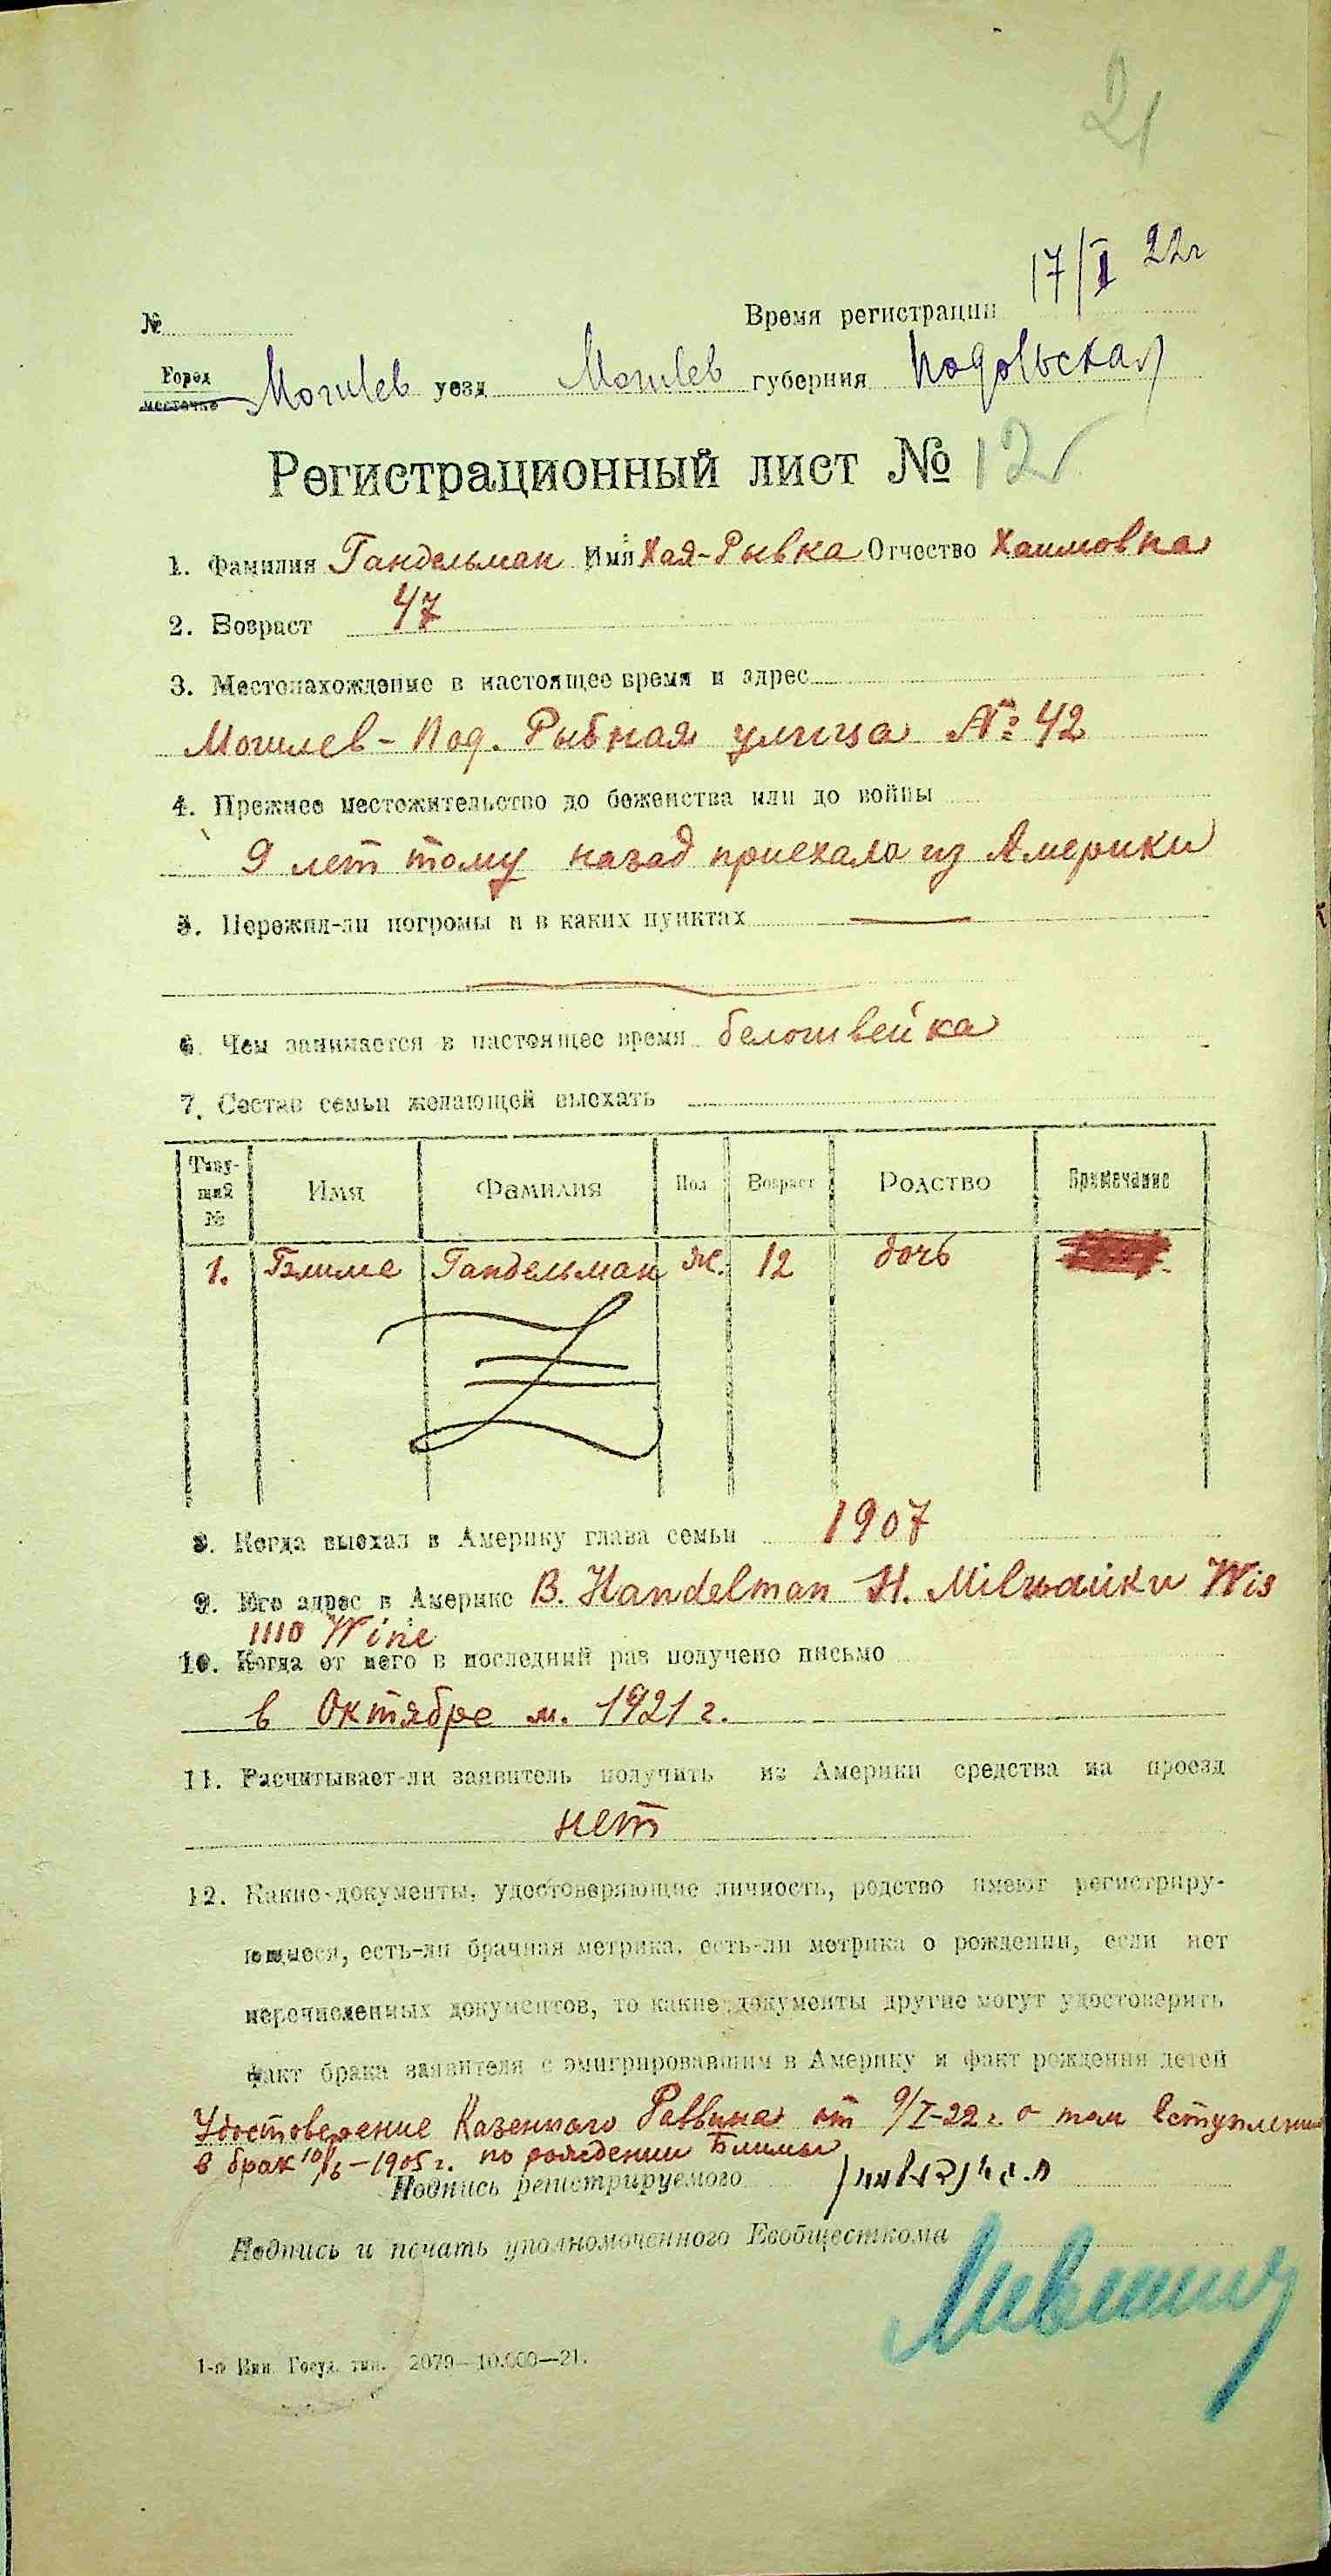 21
17/I 22г
№ Время регистрации
Город
местечко Могилев уезд Могилев губерния Подольская
Регистрационный лист № 12
1. Фамилия Гандельман Имя Хая-Рывка Отчество Хаимовна
2. Возраст 47
3. Местонахождение в настоящее время и адрес
Могилев-Под. Рыбная улица № 42
4. Прежнее местожительство до беженства или до войны
9 лет тому назад приехала из Америки
5. Пережил-ли погромы и в каких пунктах
6. Чем занимается в настоящее время белошвейка
7. Состав семьи желающей выехать
Теку-
щий
№ Имя Фамилия Пол Возраст Родство Примечание
1. Гандельман ж. 12 дочь
8. Когда выехал в Америку глава семьи 1907
9. Его адрес в Америке B. Handelman Wis
1110 Wine
10. Когда от него в последний раз получено письмо
в Октябре м. 1921 г.
11. Расчитывает-ли заявитель получить из Америки средства на проезд
нет
12. Какие-документы, удостоверяющие личность, родство имеют регистриру-
ющиеся, есть-ли брачная метрика, есть-ли метрика о рождении, если нет
перечисленных документов, то какие документы другие могут удостоверить
факт брака заявителя с эмигрировавшим в Америку и факт рождения детей
Удостоверение Казенного Раввина от 9/I-22 г. о вступлении
в брак 1905 г. рождении
Подпись регистрируемого
Подпись и печать уполномоченного Евобщесткома
1-я Вин. Госуд. тип. 2079—10.000—21.